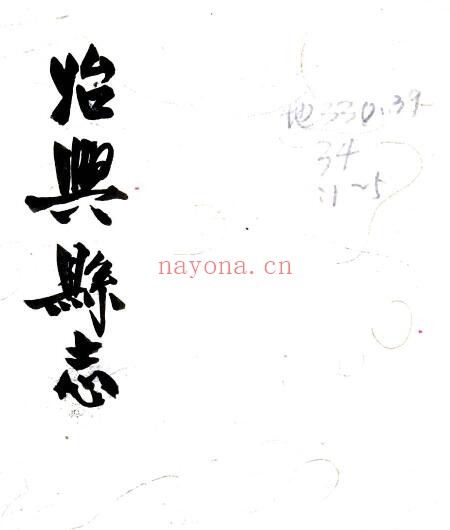 始興縣志
地330.39
34
:1~5
nayona.cn